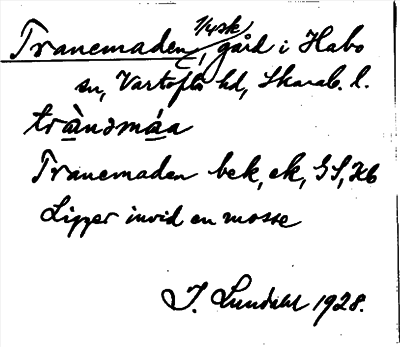 1/4 sk
Tranemaden, gård i Habo
sn, Vartofta hd, Skarab. l.
trànəmáa
Tranemaden bek, ek, GS, Hb
Ligger invid en mosse
J. Lundahl 1928.